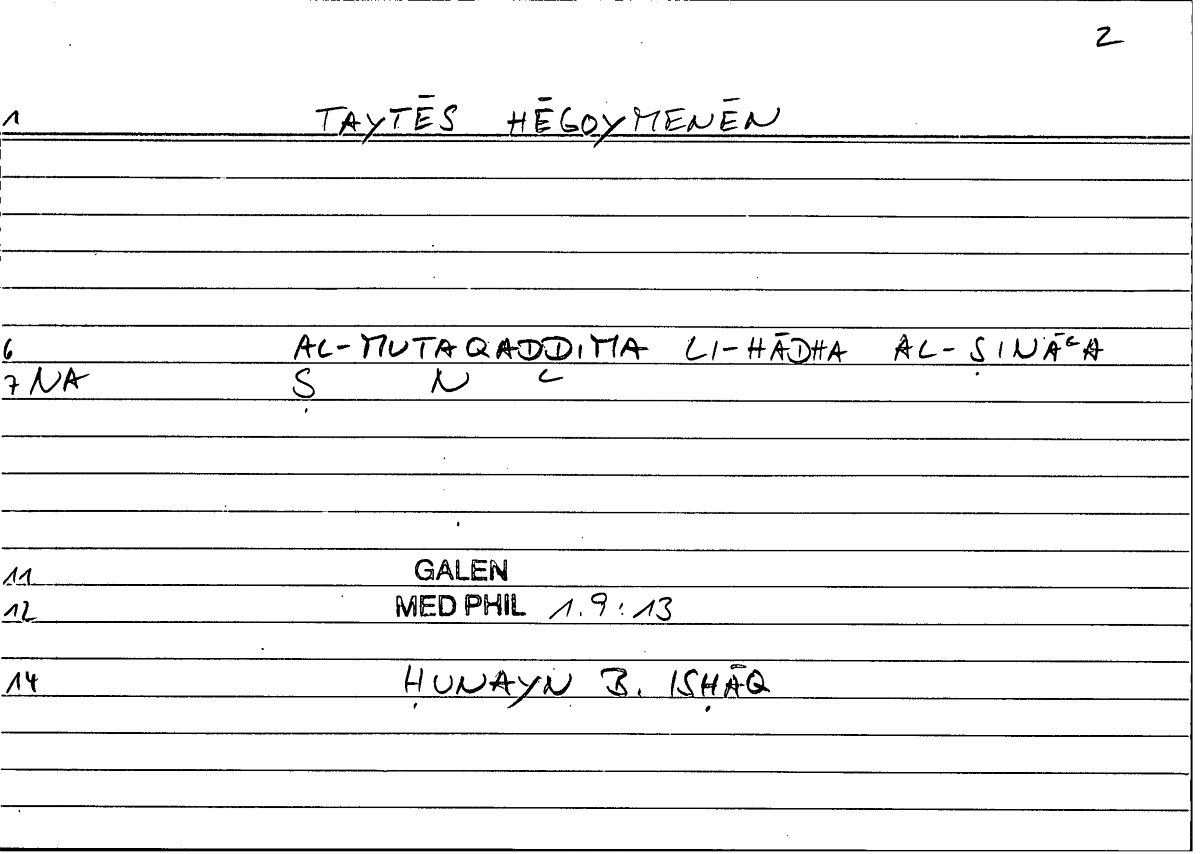 2
1 TAYTĒS HĒGOYMENĒN
6 AL-MUTAQADDIMA LI-HĀDHA AL-ṢINĀʿA
7 NA Ṣ N ʿ
11 GALEN
12 MED PHIL 1.9:13
14 ḤUNAYN B. ISḤĀQ